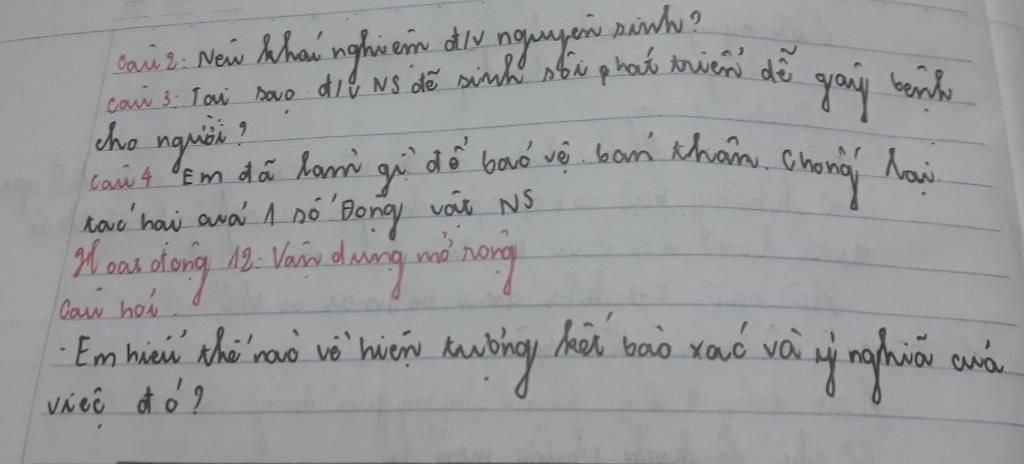 Câu 2: Nêu khái nghiệm đ/v nguyên sinh?
Câu 3: Tại sao đ/v NS dễ sinh sôi phát triển dễ gây bệnh
cho người?
Câu 4 Em đã làm gì để bảo vệ bản thân chống lại
tác hại của 1 số Động vật NS
Hoạt động 12: Vận dụng mở rộng
Câu hỏi.
- Em hiểu thế nào về hiện tượng kết bào xác và ý nghĩa của
việc đó?